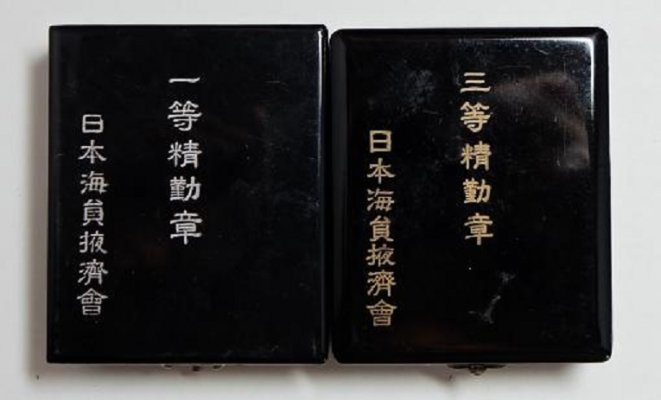 一等精勤章
日本海員掖濟會
三等精勤章
日本海員掖濟會